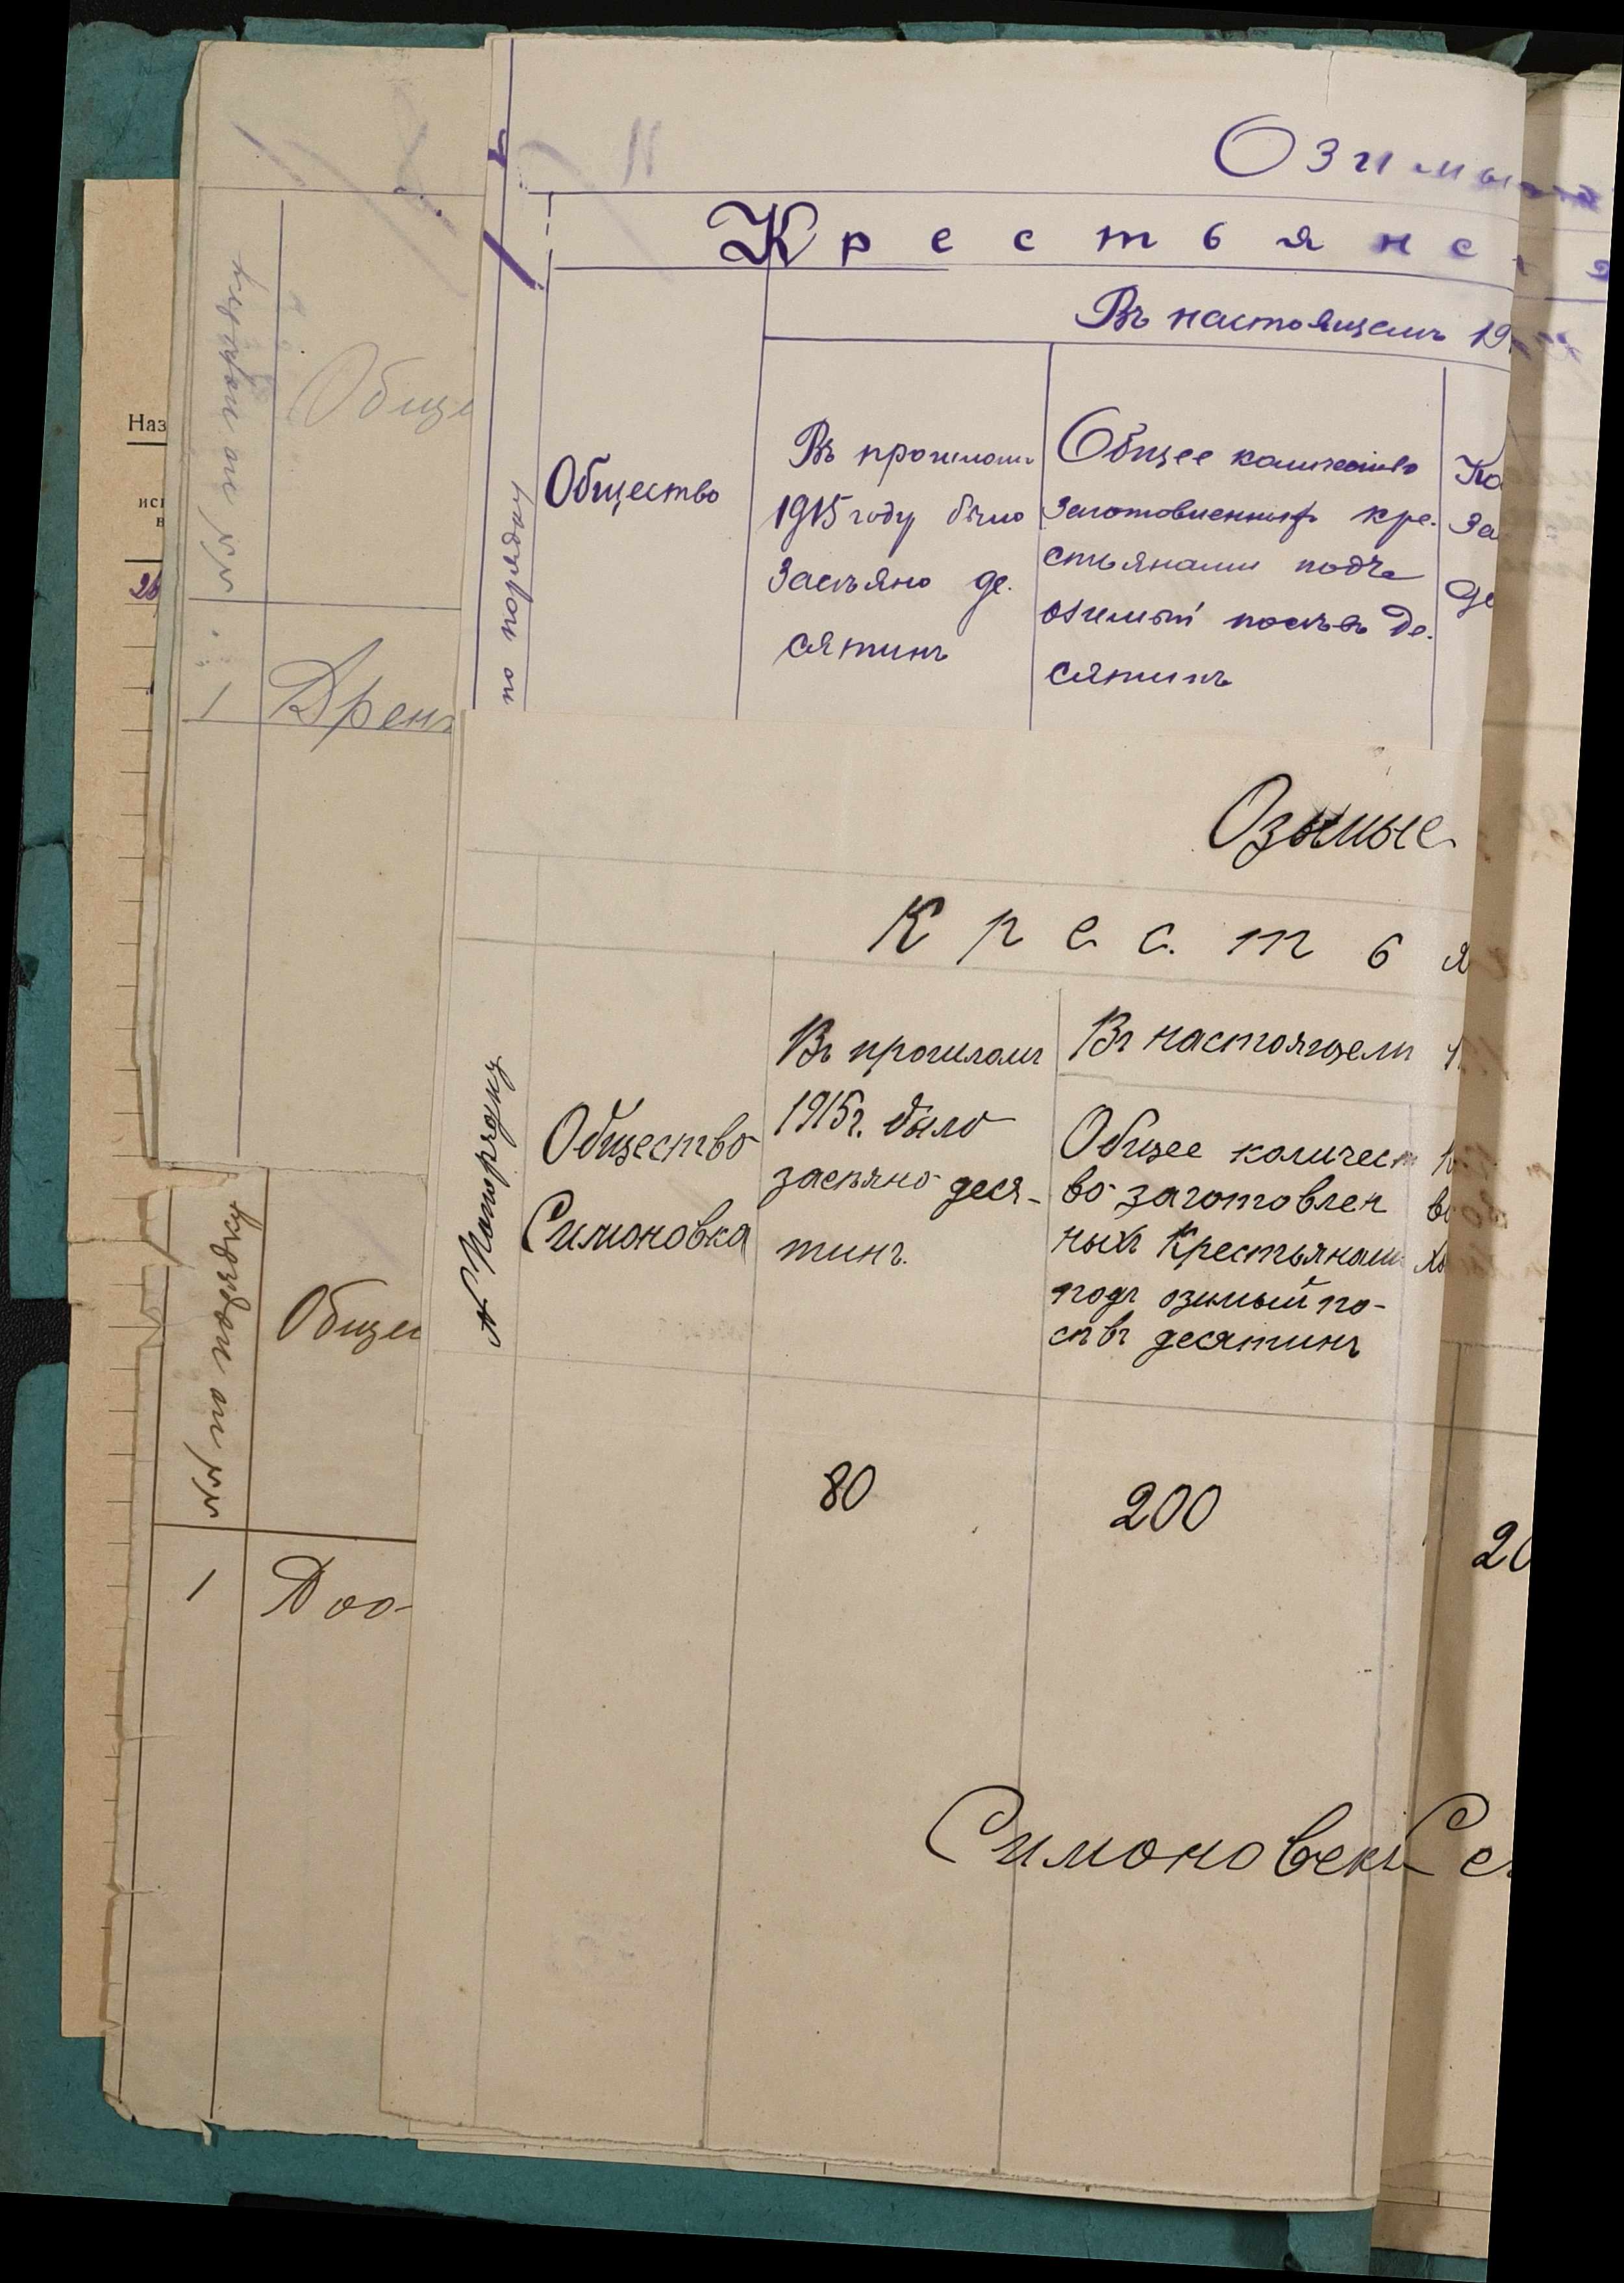 Наз
26
№№ по порядку
Обще
1
Дрен
№№ по порядку
Общес
1
Доо-
Озимы
Крестьянс
Въ настоящемъ 19
по порядкомъ
Общество
Въ прошломъ
1915 году было
засѣяно де-
сятинъ
Общее количество
заготовленныхъ кре-
стьянами подъ
озимый посѣвъ де-
сятинъ
Ко
за
де
Озымые
Крестья
№ Попорядку
Общество
Симоновка
Въ прошломъ
1915г. было
засѣяно деся-
тинъ.
Въ настоящемъ
Общее количест
во заготовлен
ныхъ Крестьянами
подъ озимый по-
сѣвъ десятинъ
80
200
20
Симоновскъ Се